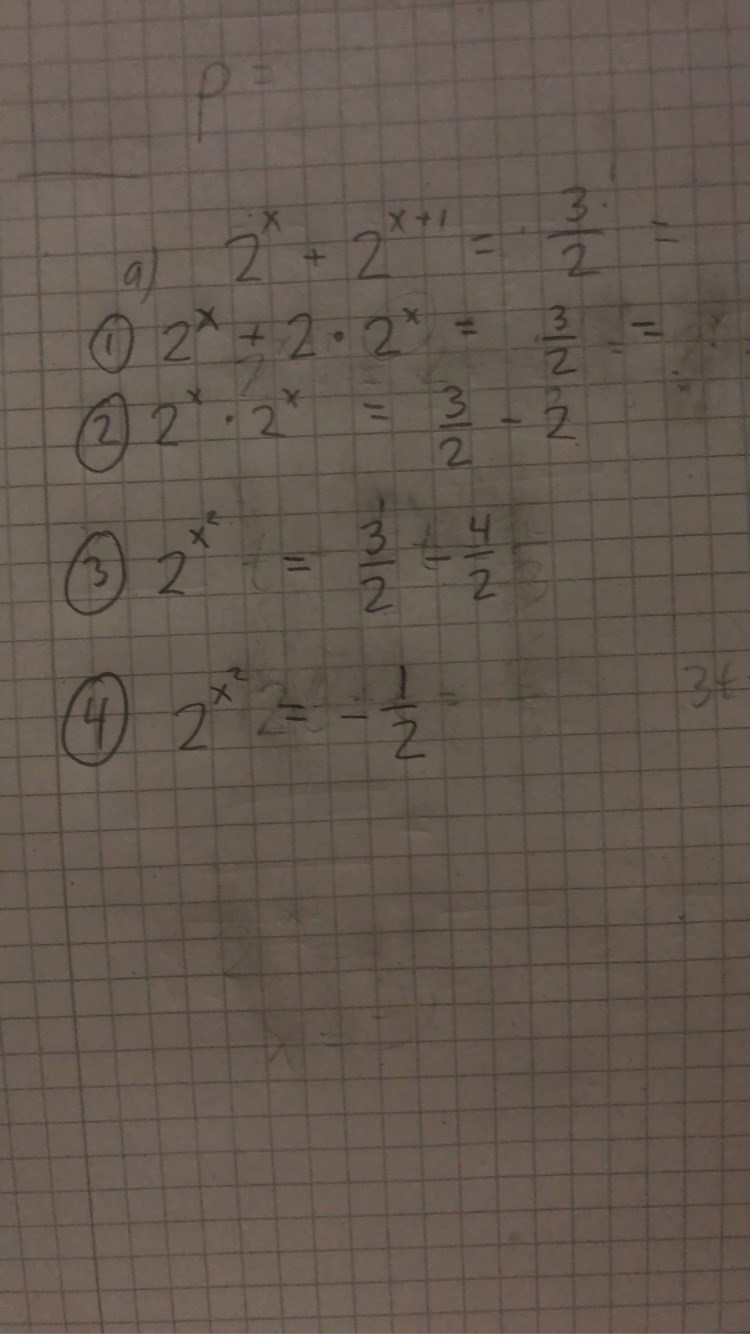 p =
a) 2^x + 2^{x+1} = 3/2 =
① 2^x + 2 · 2^x = 3/2 =
② 2^x · 2^x = 3/2 - 2
③ 2^{x^2} = 3/2 - 4/2
④ 2^{x^2} = - 1/2